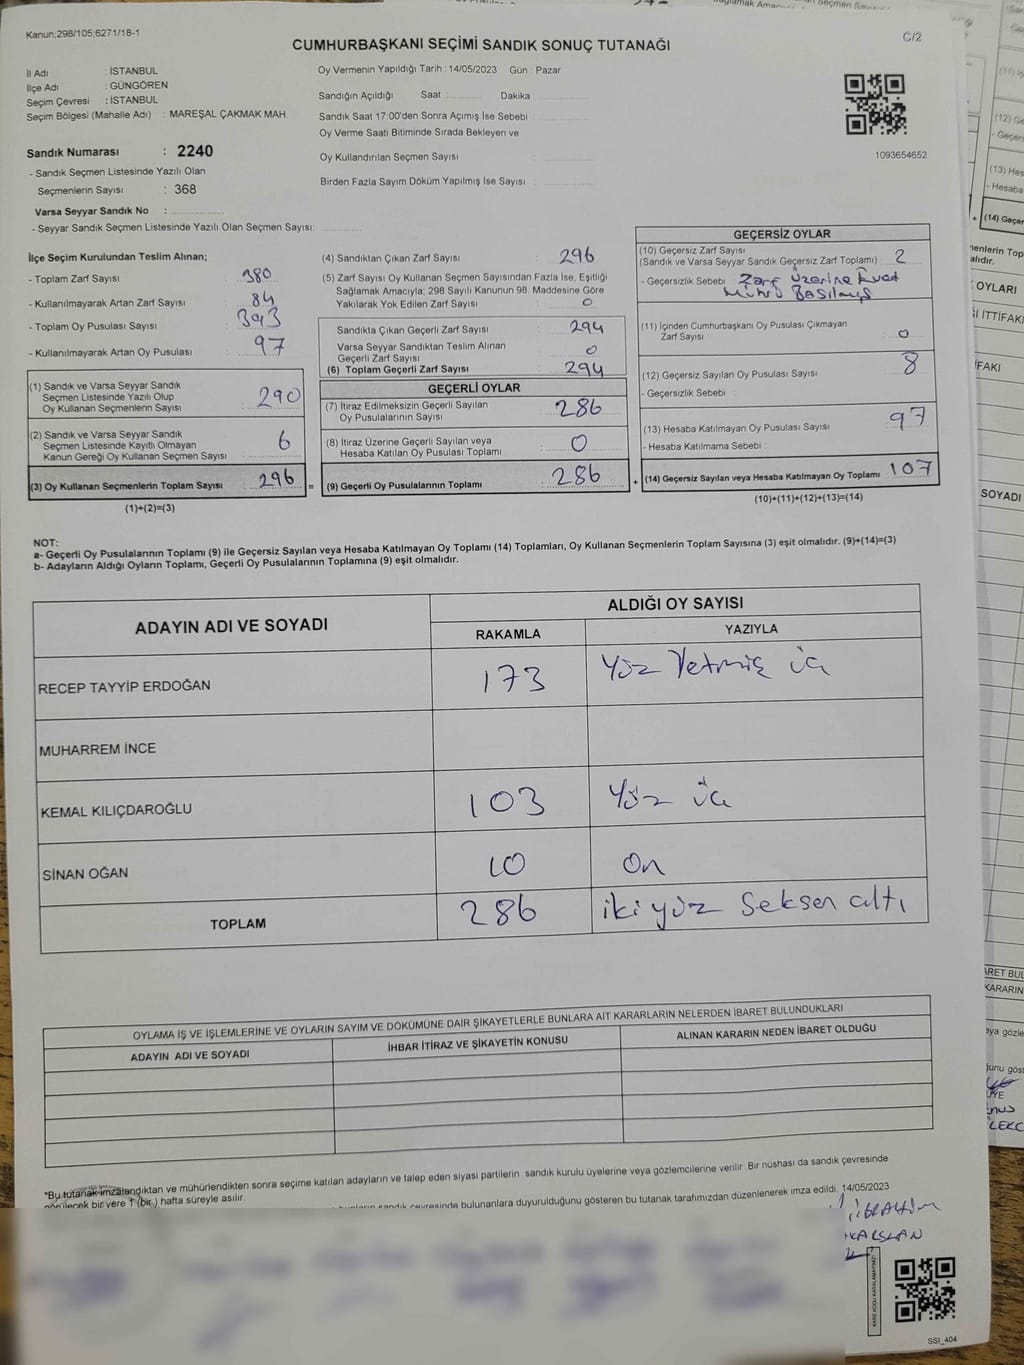 Kanun;298/105;6271/18-1
C/2
CUMHURBAŞKANI SEÇİMİ SANDIK SONUÇ TUTANAĞI
İl Adı : İSTANBUL
İlçe Adı : GÜNGÖREN
Seçim Çevresi : İSTANBUL
Seçim Bölgesi (Mahalle Adı) : MAREŞAL ÇAKMAK MAH.
Sandık Numarası : 2240
- Sandık Seçmen Listesinde Yazılı Olan
Seçmenlerin Sayısı : 368
Varsa Seyyar Sandık No : ....................
- Seyyar Sandık Seçmen Listesinde Yazılı Olan Seçmen Sayısı: ...............
Oy Vermenin Yapıldığı Tarih : 14/05/2023 Gün : Pazar
Sandığın Açıldığı Saat ............ Dakika ..................
Sandık Saat 17:00'den Sonra Açımış İse Sebebi : ..................
Oy Verme Saati Bitiminde Sırada Bekleyen ve
Oy Kullandırılan Seçmen Sayısı : ..................
Birden Fazla Sayım Döküm Yapılmış İse Sayısı : ..................
1093654652
İlçe Seçim Kurulundan Teslim Alınan;
- Toplam Zarf Sayısı : 380
- Kullanılmayarak Artan Zarf Sayısı : 84
- Toplam Oy Pusulası Sayısı : 393
- Kullanılmayarak Artan Oy Pusulası : 97
(1) Sandık ve Varsa Seyyar Sandık
Seçmen Listesinde Yazılı Olup
Oy Kullanan Seçmenlerin Sayısı : 290
(2) Sandık ve Varsa Seyyar Sandık
Seçmen Listesinde Kayıtlı Olmayan
Kanun Gereği Oy Kullanan Seçmen Sayısı : 6
(3) Oy Kullanan Seçmenlerin Toplam Sayısı : 296
(1)+(2)=(3)
=
(4) Sandıktan Çıkan Zarf Sayısı : 296
(5) Zarf Sayısı Oy Kullanan Seçmen Sayısından Fazla İse, Eşitliği
Sağlamak Amacıyla, 298 Sayılı Kanunun 98. Maddesine Göre
Yakılarak Yok Edilen Zarf Sayısı : 0
Sandıkta Çıkan Geçerli Zarf Sayısı : 294
Varsa Seyyar Sandıktan Teslim Alınan
Geçerli Zarf Sayısı : 0
(6) Toplam Geçerli Zarf Sayısı : 294
GEÇERLİ OYLAR
(7) İtiraz Edilmeksizin Geçerli Sayılan
Oy Pusulalarının Sayısı : 286
(8) İtiraz Üzerine Geçerli Sayılan veya
Hesaba Katılan Oy Pusulası Toplamı : 0
(9) Geçerli Oy Pusulalarının Toplamı : 286
+
GEÇERSİZ OYLAR
(10) Geçersiz Zarf Sayısı
(Sandık ve Varsa Seyyar Sandık Geçersiz Zarf Toplamı) : 2
- Geçersizlik Sebebi : Zarf Üzerine Evet
Mührü Basılmış
(11) İçinden Cumhurbaşkanı Oy Pusulası Çıkmayan
Zarf Sayısı : 0
(12) Geçersiz Sayılan Oy Pusulası Sayısı : 8
- Geçersizlik Sebebi :
(13) Hesaba Katılmayan Oy Pusulası Sayısı : 97
- Hesaba Katılmama Sebebi :
(14) Geçersiz Sayılan veya Hesaba Katılmayan Oy Toplamı : 107
(10)+(11)+(12)+(13)=(14)
NOT:
a- Geçerli Oy Pusulalarının Toplamı (9) ile Geçersiz Sayılan veya Hesaba Katılmayan Oy Toplamı (14) Toplamları, Oy Kullanan Seçmenlerin Toplam Sayısına (3) eşit olmalıdır. (9)+(14)=(3)
b- Adayların Aldığı Oyların Toplamı, Geçerli Oy Pusulalarının Toplamına (9) eşit olmalıdır.
ADAYIN ADI VE SOYADI
ALDIĞI OY SAYISI
RAKAMLA YAZIYLA
RECEP TAYYİP ERDOĞAN 173 Yüz Yetmiş üç
MUHARREM İNCE
KEMAL KILIÇDAROĞLU 103 Yüz üç
SİNAN OĞAN 10 On
TOPLAM 286 iki yüz Seksen altı
OYLAMA İŞ VE İŞLEMLERİNE VE OYLARIN SAYIM VE DÖKÜMÜNE DAİR ŞİKAYETLERLE BUNLARA AİT KARARLARIN NELERDEN İBARET BULUNDUKLARI
ADAYIN ADI VE SOYADI İHBAR İTİRAZ VE ŞİKAYETİN KONUSU ALINAN KARARIN NEDEN İBARET OLDUĞU
*Bu tutanak imzalandıktan ve mühürlendikten sonra seçime katılan adayların ve talep eden siyasi partilerin sandık kurulu üyelerine veya gözlemcilerine verilir. Bir nüshası da sandık çevresinde
görülecek bir yere 1 (bir) hafta süreyle asılır.
sandık çevresinde bulunanlara duyurulduğunu gösteren bu tutanak tarafımızdan düzenlenerek imza edildi. 14/05/2023
İBRAHİM
KARSLAN
SSI_404